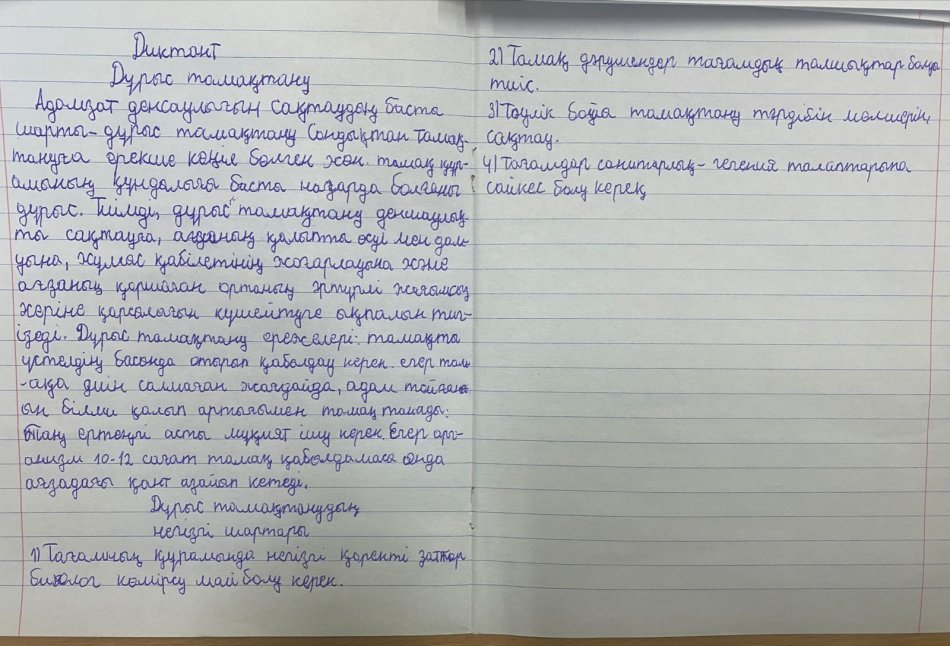 Диктант
Дұрыс тамақтану
Адамзат денсаулығын сақтаудың басты
шарты - дұрыс тамақтану Сондықтан тамақ-
тануға ерекше көңіл бөлген жөн. тамақ құр-
амының құндалығы басты назарда болғаны
дұрыс. Тиімді, дұрыс тамақтану деншаулық-
ты сақтауға, ағзаның қалыпты өсуі мен дам-
уына, жұмыс қабілетінің жоғарлауына және
ағзаның қоршаған ортаның әртүрлі жағымсыз
жеріне қарсылағын күшейтуге ықпалын тиг-
ізеді. Дұрыс тамақтану ережелері: тамақты
үстелдің басында отырып қабылдау керек. егер там-
-аққа диін салмаған жағдайда, адам тойған
ын білми қалып артығымен тамақ танады:
Таңу ертеңгі асты мұқият ішу керек. Егер орг-
анизм 10-12 сағат тамақ қабылдамаса онда
ағзадағы қант азайып кетеді.
Дұрыс тамақтанудың
негізгі шартары
1) Тағамның құрамында негізгі қоректі заттар
көмірсу май болу керек.
2) Тамақ дәрумендер тағамдық талшықтар болуы
тиіс.
3) Тәулік бойы тамақтану тәрдібін мөлшерін,
сақтау.
4) Тағамдар санитарлық - гегения талаптарына
сәйкес болу керек